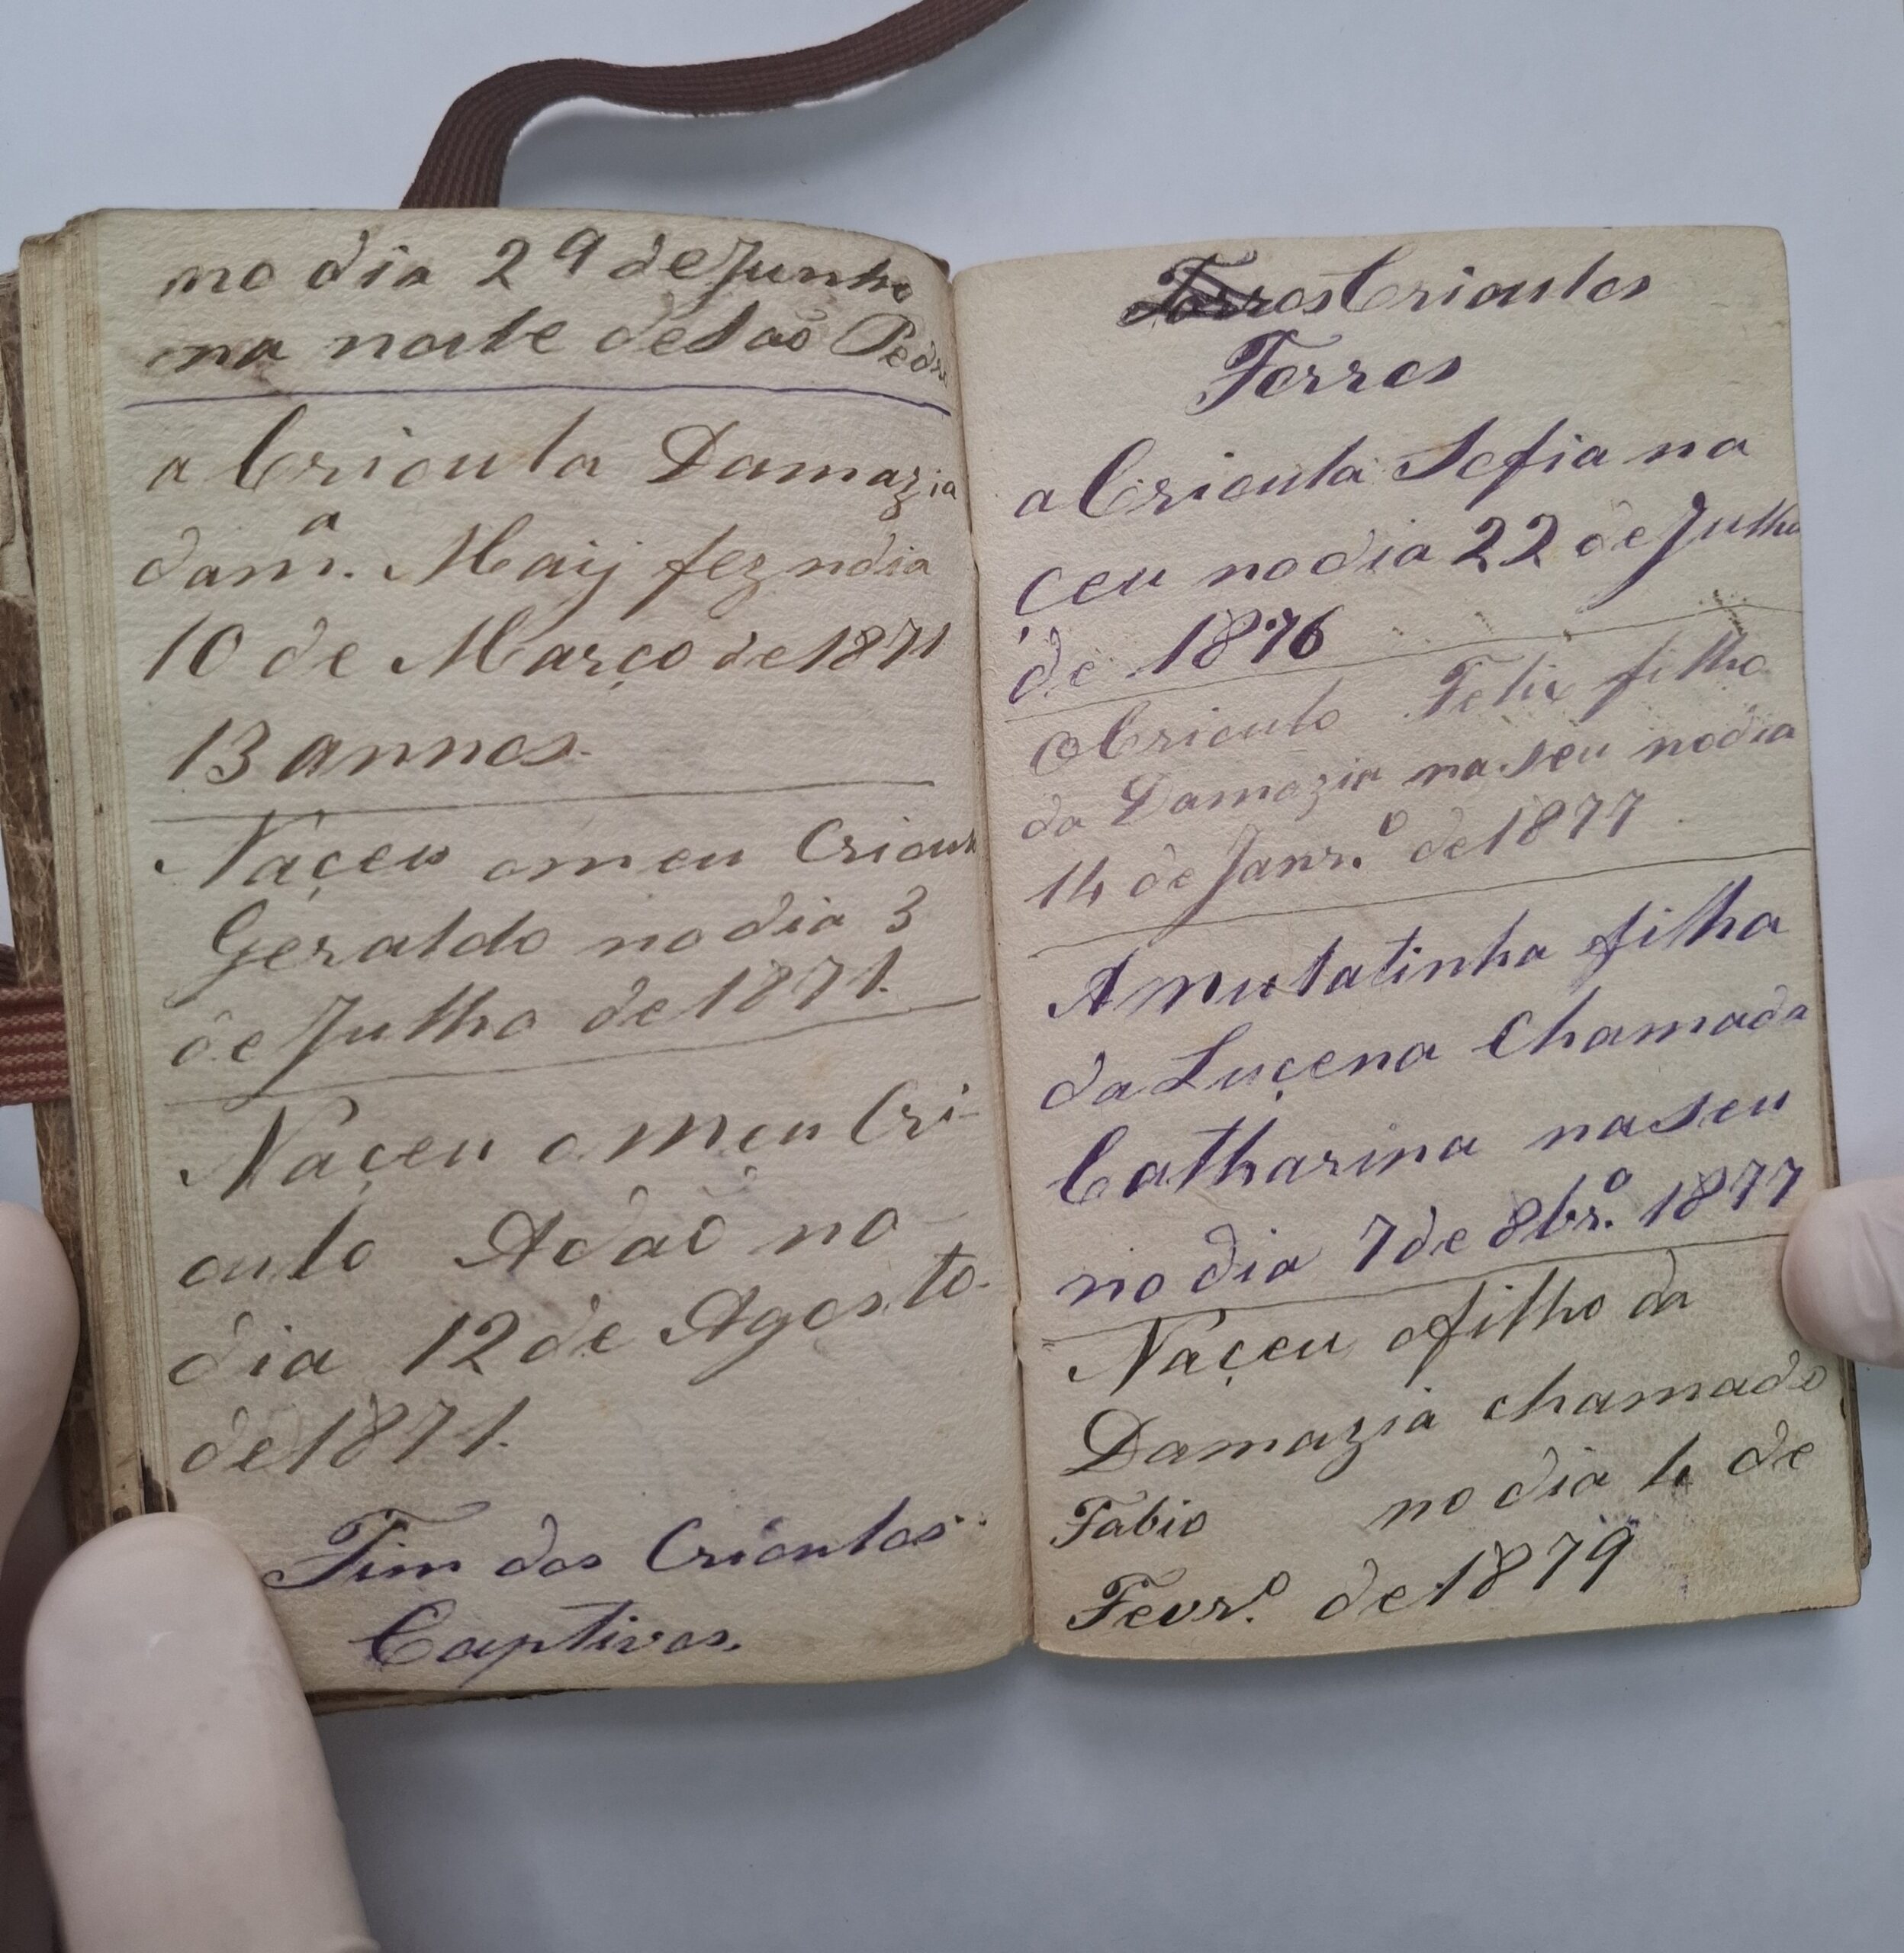 no dia 29 de Junho
na noute de Sao Pedro
a Crioula Damazia
da m.ª Maij fez ndia
10 de Março de 1871
13 annos.
Naçeu o meu Crioul
Geraldo no dia 3
de Julho de 1871.
Naçeu o meu Cri-
oulo Adaõ no
dia 12 de Agosto
de 1871.
Fim dos Crioulos
Captivos.
Forros Crioulos
Forros
a Crioula Sofia na
çeu no dia 22 de Julho
de 1876
o Crioulo Felix filho
da Damazia naseu no dia
14 de Janr.º de 1877
A mulatinha filha
da Luçena Chamada
Catharina naseu
no dia 7 de 8br.º 1877
Naçeu o filho da
Damazia chamado
Fabio no dia 4 de
Fevr.º de 1879